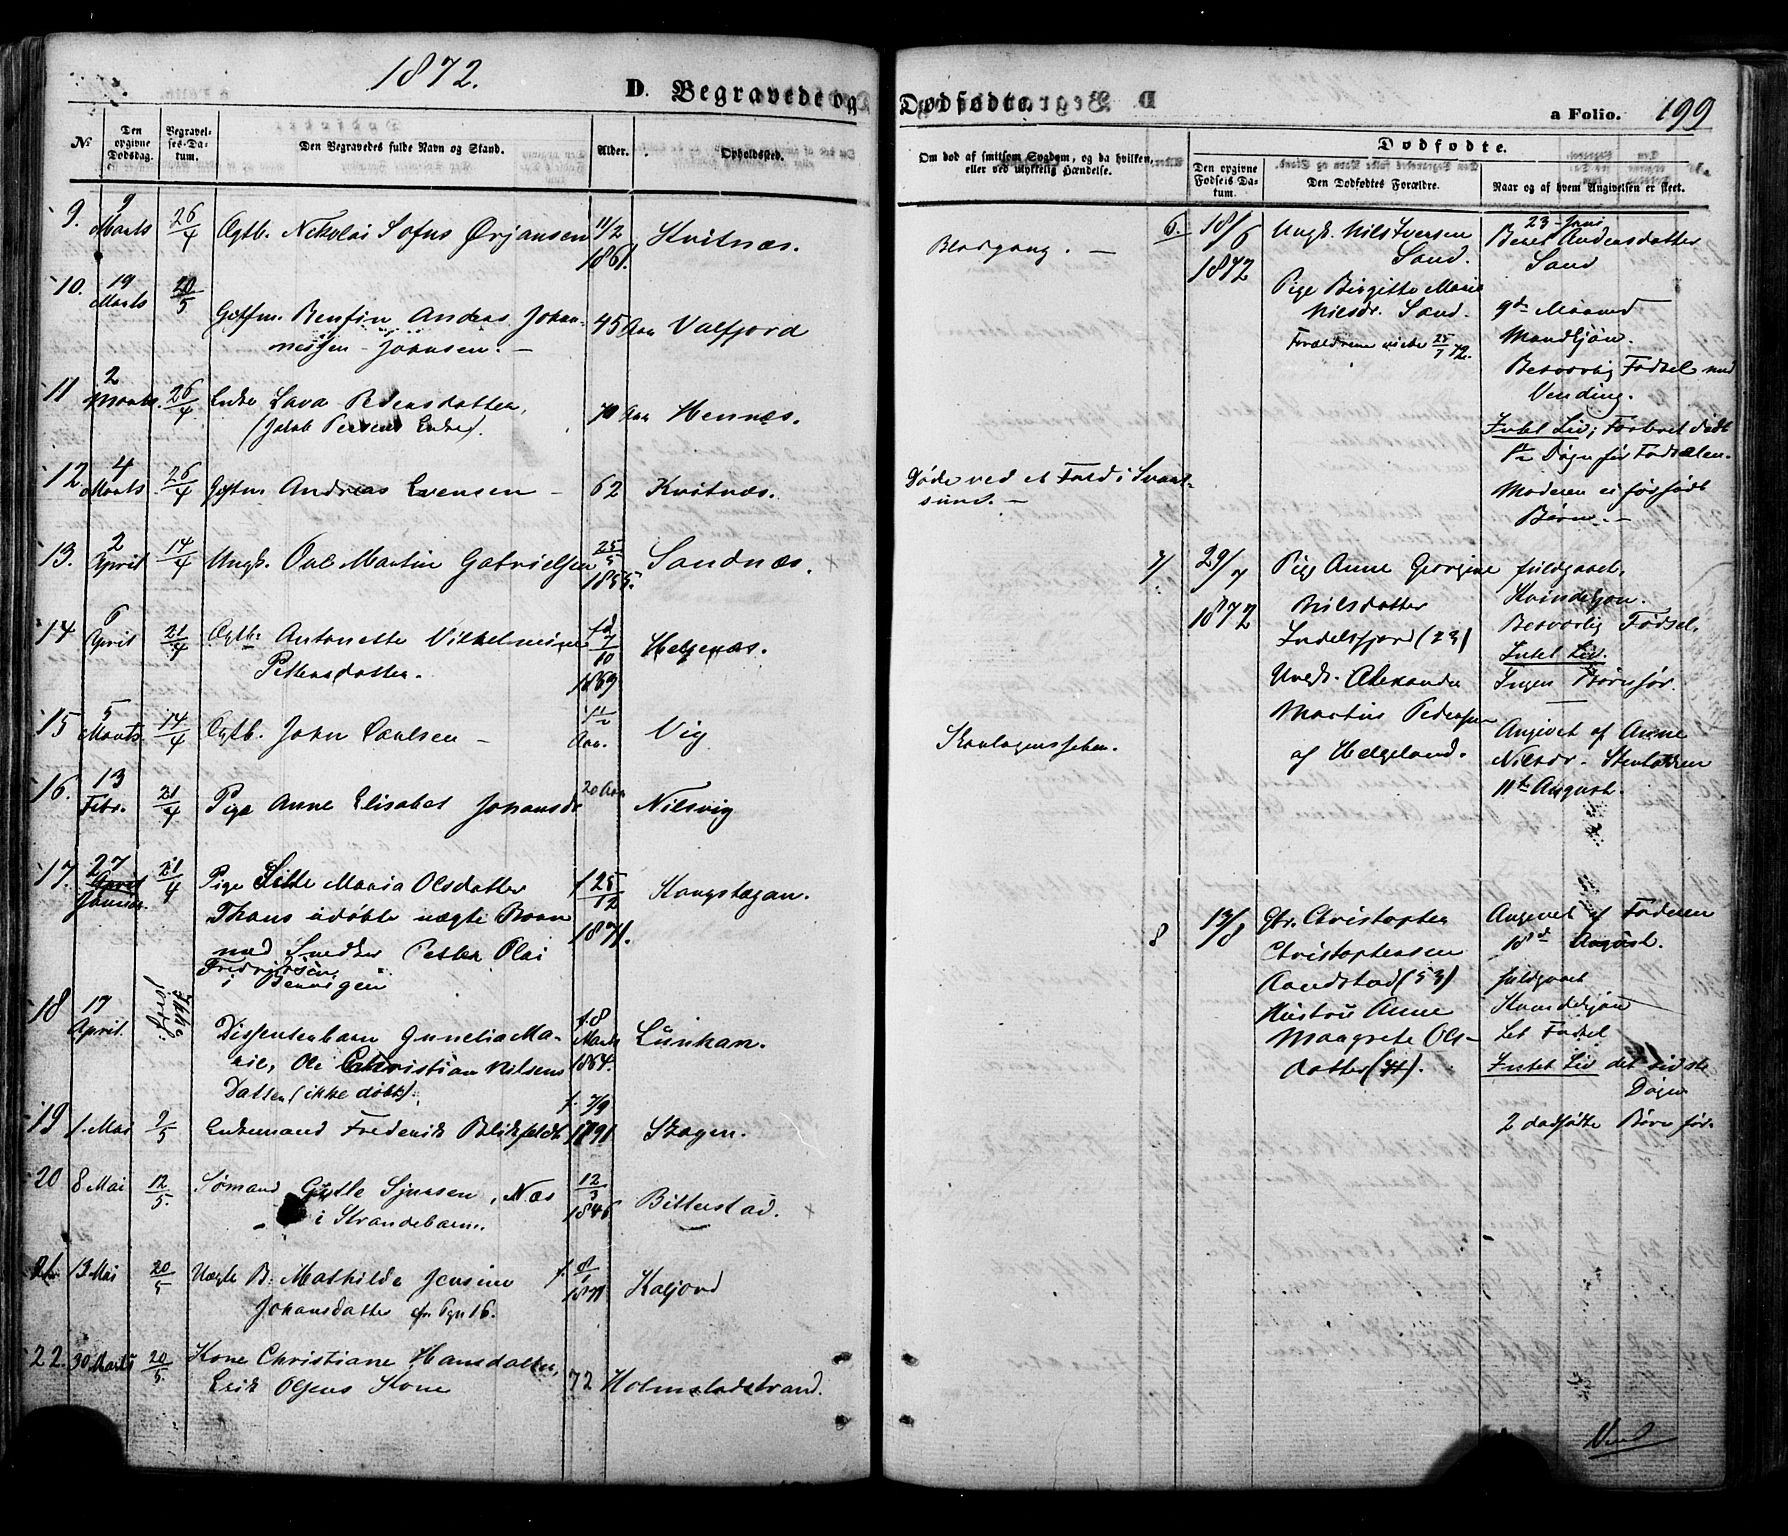 1872.
D. Begravede og
Dødfødte.
a Folio. 199
№
Den opgivne Dødsdag.
Begravelses-Datum.
Den Begravedes fulde Navn og Stand.
Alder.
Opholdssted.
Om død af smitsom Sygdom, og da hvilken, eller ved ulykkelig Hændelse.
Dødfødte.
Den opgivne Fødsels Datum.
Den Dødfødtes Forældre.
Naar og af hvem Angivelsen er skeet.
9. 9 Marts 26/4 Ægtb. Nikolai Sofus Ørjansen 11/2 1861. Kvitnæs. Blodgang. —
10. 19 Marts 20/5 Gaftm. Andreas Johan-
nissen - Johnsen. — 45 Aar Valfjord
11 2 Marts. 26/4 Enke Lava Pedersdatter, 70 Aar Hennæs.
(Jakob Persens Enke).
12. 4 Marts 26/4 Andreas Evensen — 62 Kvitnæs. Døde ved et Fald i
sund. —
13. 2 April 14/4 Ungk. Ole Martin Gabrielsen 25/5 1855. Sandnæs.
14 6 April 21/4 Ægtb. Antonette Vilhelmine
Pettersdatter. fd 7/10 1869 Helgenæs.
15 5 Marts 14/4 Ægtb. John Carlsen — Aar. Vig Skarlagensfeber.
16. 13 Febr. 21/4 Pige Anne Elisabet Johansdr 20 Aar Nilsvig
17. 27 Januar. 21/4 Pige Maria Olsdatter f. 25/12 1871.
udøbte uægte Barn
med Snedker Petter Olai
Fredriksen
i
18 17 April. Dissenterbarn Gunelia Ma-
rie, Ole Christian Nilsens
Datter (ikke døbt). f. 8 Marts 1864. Lunkan.
19 1. Mai 9/5 Enkemand Frederik Blikfeldt f. 7/9 1791 Skagen.
20 8 Mai 12/5. Sømand Gjetle Sjursen, Næs
i Strandebarm. 12/3 1846 Bitterstad.
21. 13 Mai 20/5 Uægte B. Mathilde Jensine
Johansdatter cfr. No 16. f. 8/1 Kaljord
22. 30 Marts 20/5. Kone Christiane Hansdatter,
Erik Olsens Kone 72 Holmstadstrand.
6. 18/6 1872
Ungk. Nils Iversen
Sand.
Pige Birgitte Marie
Nilsdr. Sand.
Forældrene viede 25/7 72.
23 Juni
Beret Andersdatter
Sand
9de Maaned
Mandkjøn.
Besværlig Fødsel med
Vending.
Intet Liv; Fosteret dødt
1/2 Døgn før Fødselen.
Moderen ei før født
Børn. —
7/ 29/7 1872
Pige Anne Georgine
Nilsdatter
Indelsfjord (23)
Ungk. Alexander
Martius Pedersen
af Helgeland.
fuldgaaet,
Kvindekjøn.
Besværlig Fødsel,
Intet Liv.
Ingen Børn før.
Angivet af Anne
Nilsdr. Stenbakken
11te August.
8 13/8
Gbr. Christopher
Christophersen
Sandstad (53)
Hustru Anne
Maagrete Ols-
datter
Angivet af Faderen
18de August.
fuldgaaet
Kvindekjøn
Let Fødsel
Intet Liv det sidste
Døgn
2 dødfødte Børn før.